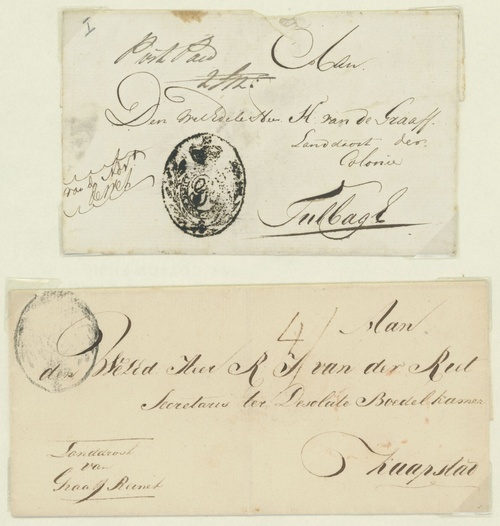 I
Post Paid
Aan
Den Wel Edele Heer H van de Graaff
Landdrost der
Colonie
Tulbagh
4/
Aan
den WelEd Heer R J van der Riet
Secretaris ter Desolate Boedelkamer
Kaapstad
Landdrost
van
Graaff Reinet